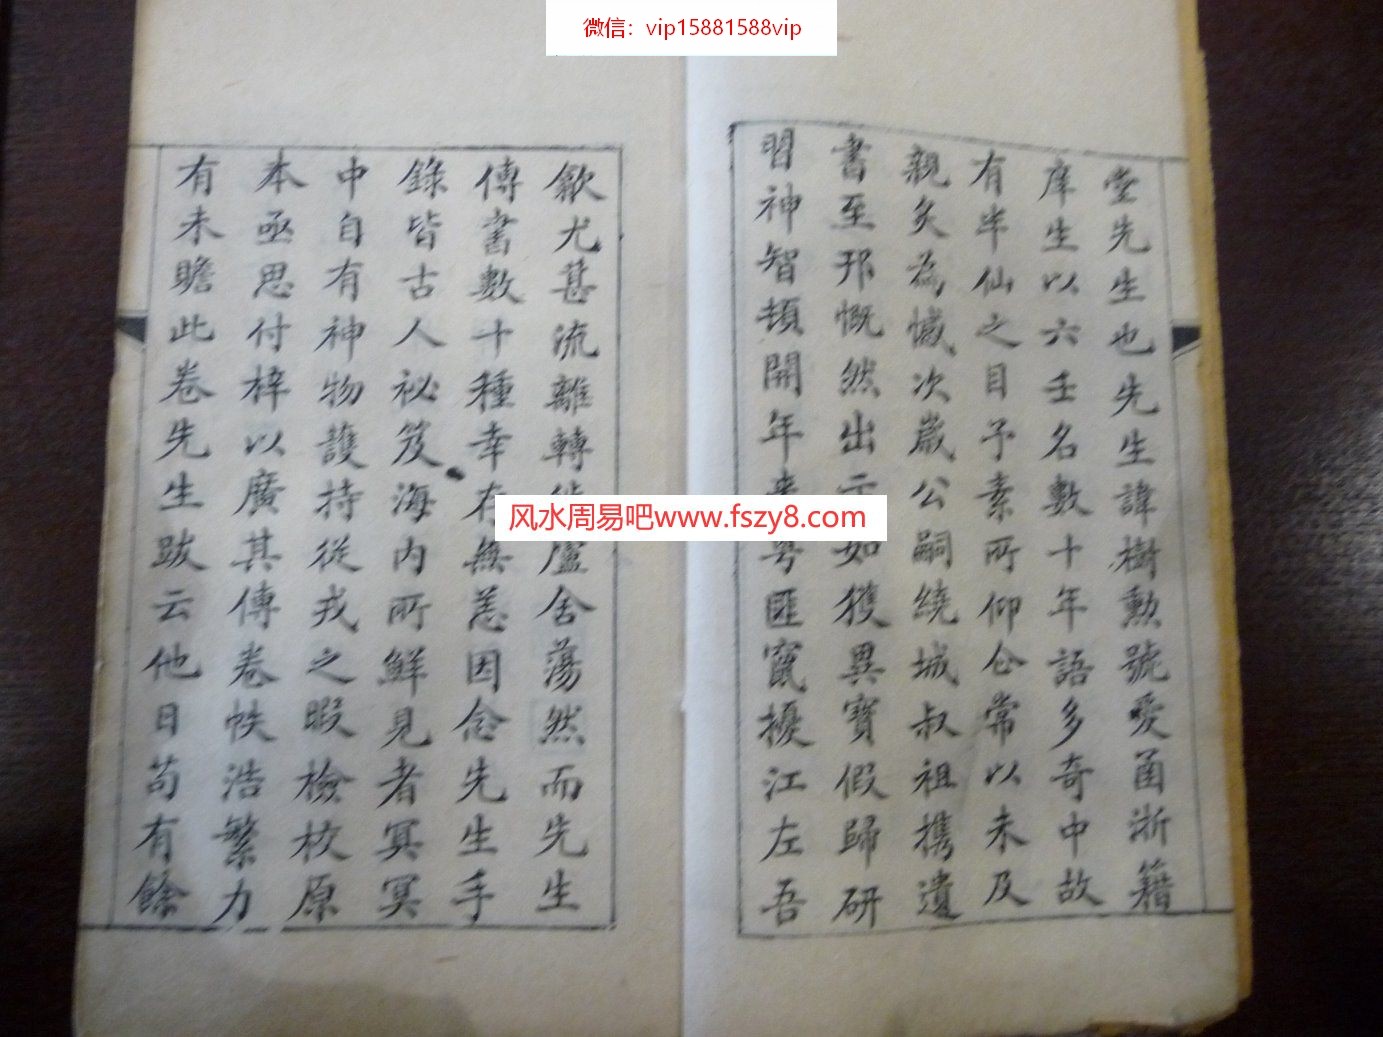 微信：vip15881588vip
堂先生也先生諱樹勲號愛菌浙籍
庠生以六壬名數十年語多奇中故
有半仙之目予素所仰仝常以未及
親炙為憾次嵗公嗣繞城叔祖携遺
書至邗慨然出示如獲異寶假歸研
習神智頓開年来粤匪竄擾江左吾
歙尤甚流離轉徙廬舍蕩然而先生
傳書數十種幸存無恙因念先生手
錄皆古人祕笈海內所鮮見者冥冥
中自有神物護持從戎之暇檢校原
本亟思付梓以廣其傳卷帙浩繁力
有未贍此卷先生跋云他日苟有餘
风水周易吧www.fszy8.com